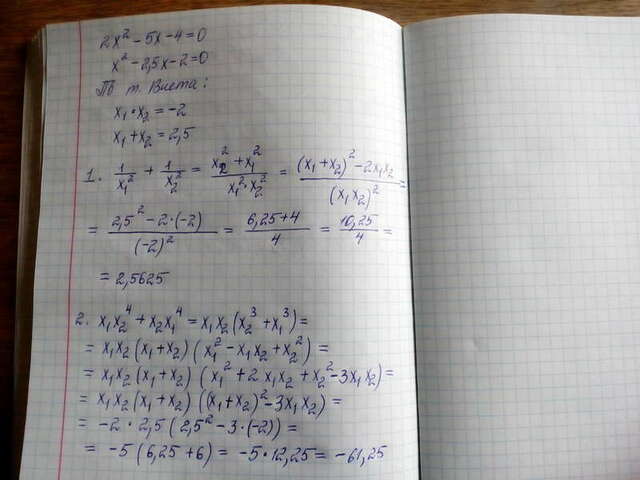 2x² - 5x - 4 = 0
x² - 2,5x - 2 = 0
По т. Виета:
x₁ · x₂ = -2
x₁ + x₂ = 2,5
1. 1/x₁² + 1/x₂² = (x₂² + x₁²)/(x₁² · x₂²) = ((x₁ + x₂)² - 2x₁x₂)/(x₁x₂)² =
= (2,5² - 2·(-2))/(-2)² = (6,25 + 4)/4 = 10,25/4 =
= 2,5625
2. x₁x₂⁴ + x₂x₁⁴ = x₁x₂(x₂³ + x₁³) =
= x₁x₂(x₁ + x₂)(x₁² - x₁x₂ + x₂²) =
= x₁x₂(x₁ + x₂)(x₁² + 2x₁x₂ + x₂² - 3x₁x₂) =
= x₁x₂(x₁ + x₂)((x₁ + x₂)² - 3x₁x₂) =
= -2 · 2,5(2,5² - 3·(-2)) =
= -5(6,25 + 6) = -5 · 12,25 = -61,25